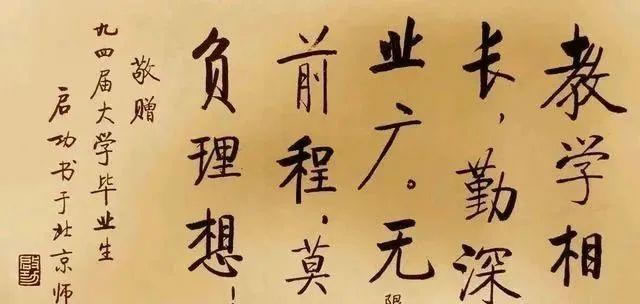 教学相
长，勤深
业广。无限
前程，莫
负理想！
敬赠
九四届大学毕业生
启功书于北京师